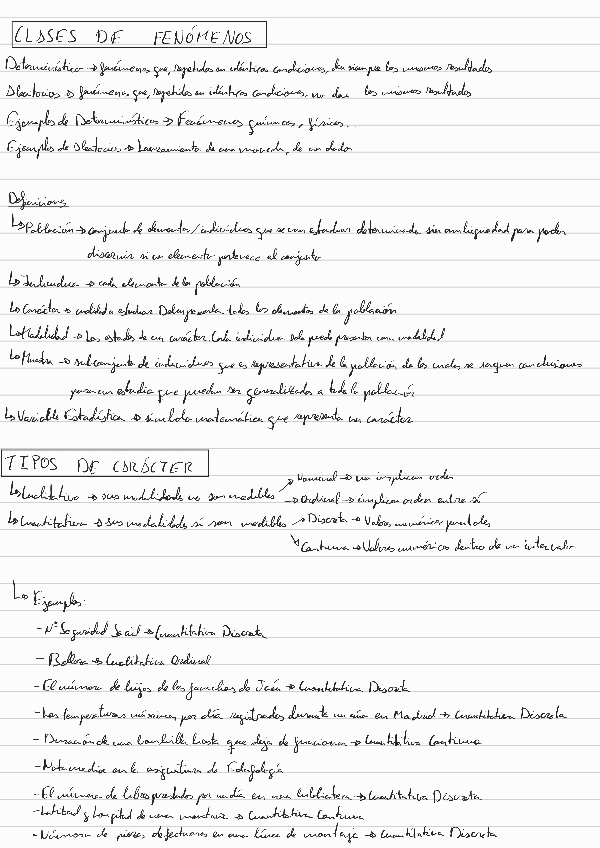 CLASES DE FENÓMENOS
Determinístico → fenómenos que, repetidos en idénticas condiciones, dan siempre los mismos resultados
Aleatorios → fenómenos que, repetidos en idénticas condiciones, no dan los mismos resultados
Ejemplos de Determinísticos → Fenómenos químicos, físicos...
Ejemplos de Aleatorios → Lanzamiento de una moneda, de un dado
Definiciones
↳ Población → conjunto de elementos/individuos que se van estudiar determinada sin ambiguedad para poder
discernir si un elemento pertenece al conjunto
↳ Individuo → cada elemento de la población
↳ Carácter → cualidad a estudiar. Debe presentar todos los elementos de la población
↳ Modalidad → Los estados de un carácter. Cada individuo solo puede presentar una modalidad
↳ Muestra → subconjunto de individuos que es representativo de la población de los cuales se sacan conclusiones
para un estudio que puedan ser generalizados a toda la población
↳ Variable Estadística → símbolo matemático que representa un carácter
TIPOS DE CARÁCTER
↳ Cualitativo → sus modalidades no son medibles → Nominal → no implican orden
→ Ordinal → implican orden entre sí
↳ Cuantitativo → sus modalidades si son medibles → Discreta → Valores numéricos puntuales
↘ Continua → Valores numéricos dentro de un intervalo
↳ Ejemplos:
- Nº Seguridad Social → Cuantitativa Discreta
- Belleza → Cualitativa Ordinal
- El número de hijos de las familias de Jaén → Cuantitativa Discreta
- Las temperaturas máximas por día registradas durante un año en Madrid → Cuantitativa Discreta
- Duración de una bombilla hasta que deja de funcionar → Cuantitativa Continua
- Nota media en la asignatura de
- El número de libros prestados por un día en una biblioteca → Cuantitativa Discreta
- Latitud y Longitud de una montaña → Cuantitativa Continua
- Número de piezas defectuosas en una línea de montaje → Cuantitativa Discreta